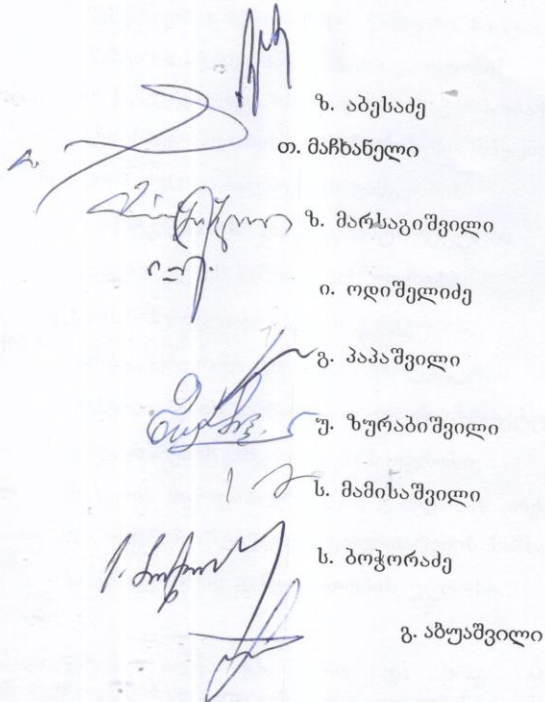 ზ. აბესაძე
თ. მაჩხანელი
ზ. მარსაგიშვილი
ი. ოდიშელიძე
გ. პაპაშვილი
უ. ზურაბიშვილი
ს. მამისაშვილი
ს. ბოჭორაძე
გ. აბუაშვილი